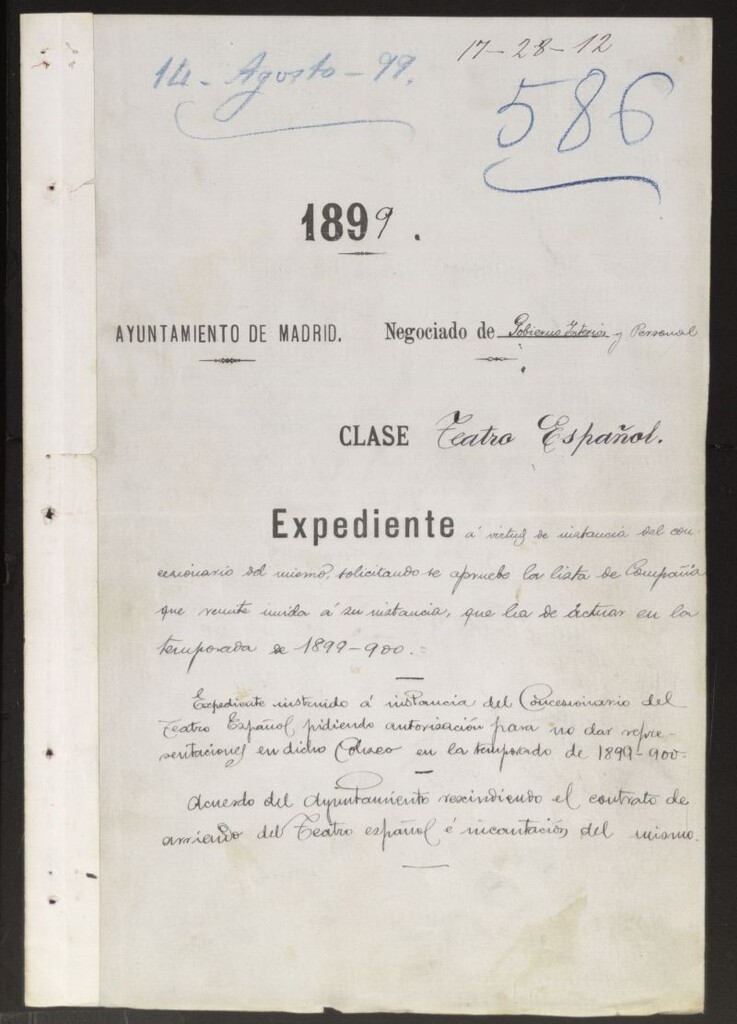 17-28-12
14 - Agosto - 99.
586
1899.
AYUNTAMIENTO DE MADRID. Negociado de Gobierno Interior y Personal
CLASE Teatro Español.
Expediente á virtud de instancia del con-
cesionario del mismo, solicitando se apruebe la lista de Compañia
que remite unida á su instancia, que ha de actuar en la
temporada de 1899-900.=
Expediente instruido á instancia del Concesionario del
Teatro Español pidiendo autorisación para no dar repre-
sentaciones en dicho Coliseo en la temporada de 1899-900=
Acuerdo del Ayuntamiento rescindiendo el contrato de
arriendo del Teatro español é incautación del mismo.